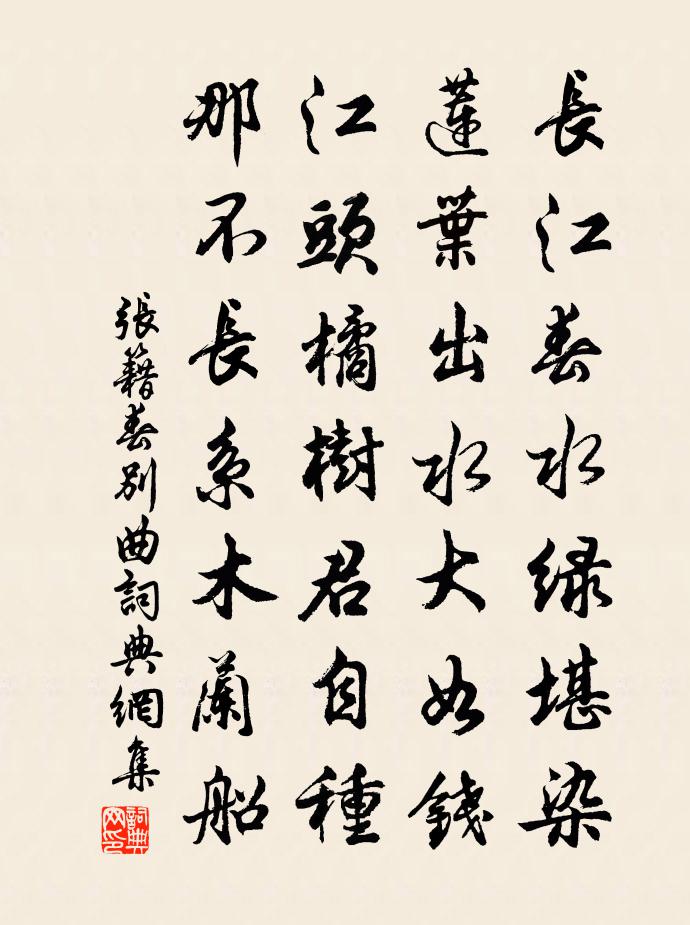 長江春水绿堪染
蓮葉出水大如錢
江頭橘樹君自種
那不長系木蘭船
張籍春别曲詞典網集
詞典网印